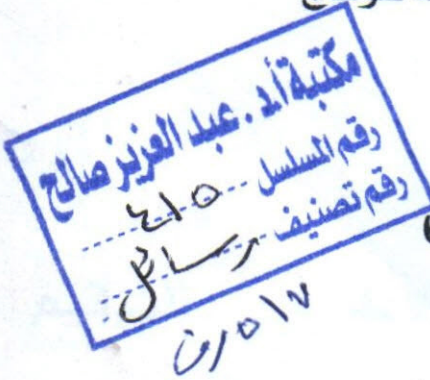 مكتبة أ.د. عبد العزيز صالح
رقم المسلسل ٤١٥
رقم تصنيف رسائل
٥١٧